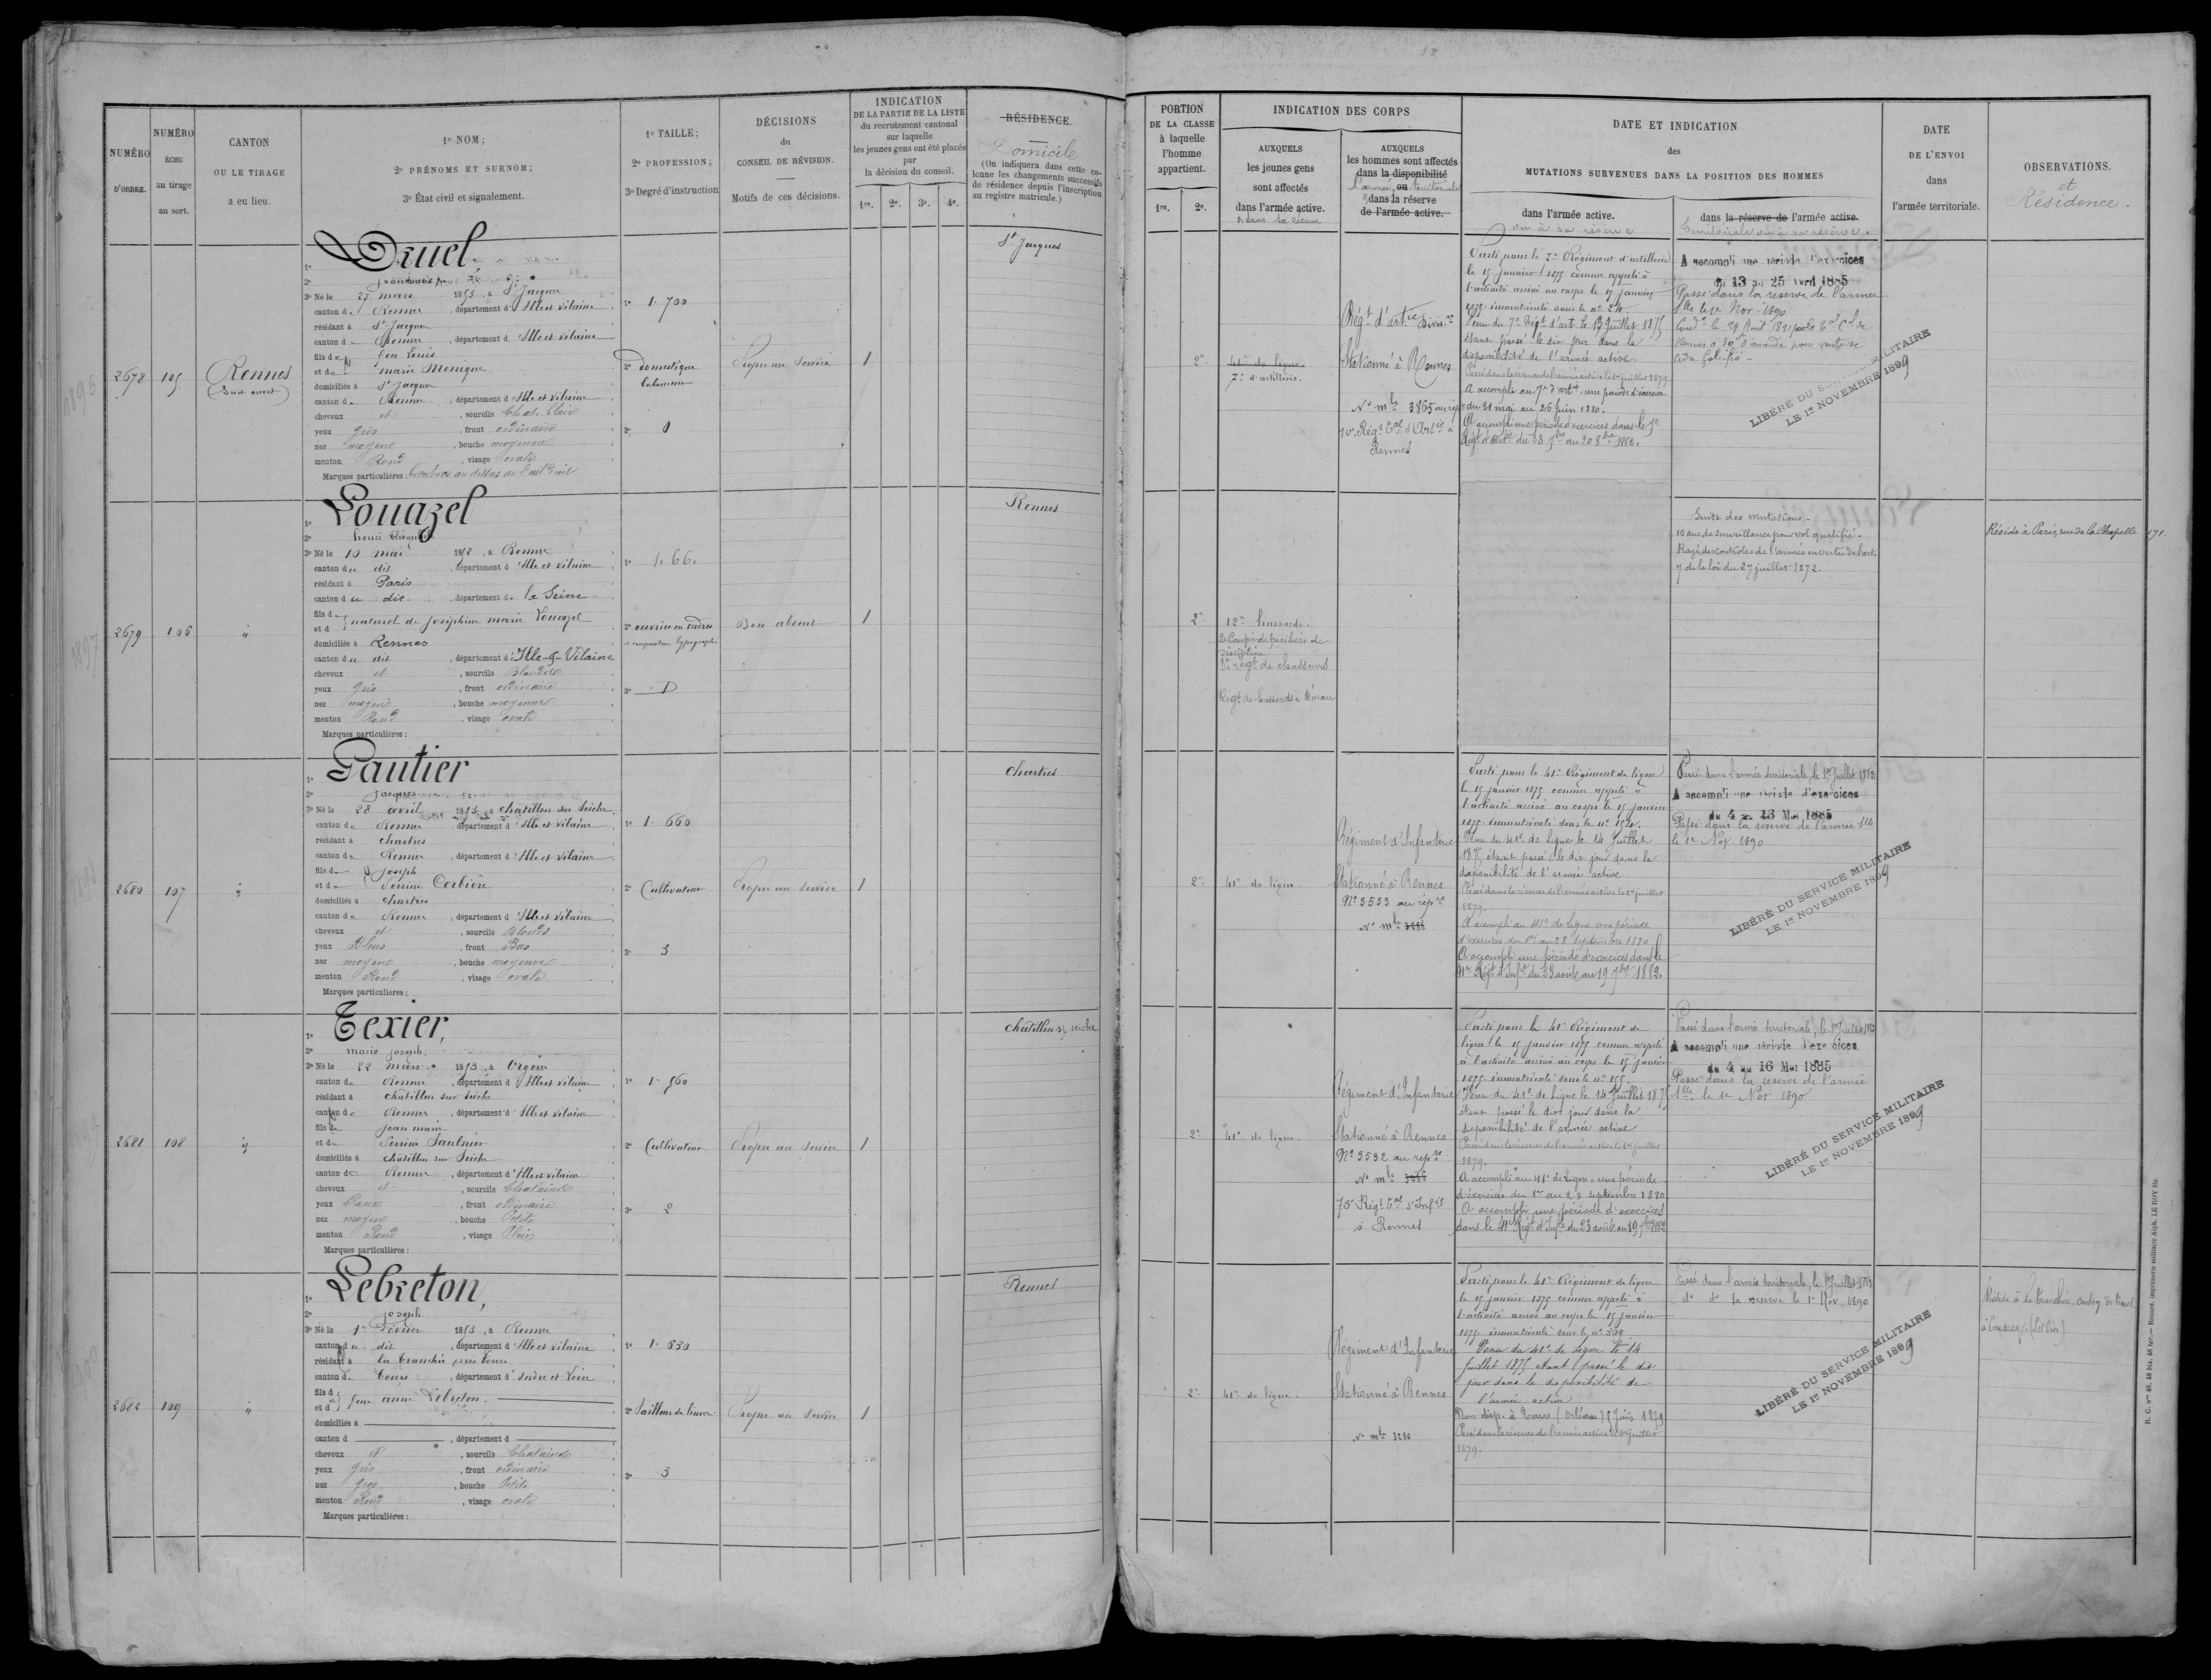 NUMÉRO D'ORDRE.
NUMÉRO ÉCHU au tirage au sort.
CANTON OU LE TIRAGE a eu lieu.
1º NOM;
2º PRÉNOMS ET SURNOM;
3º État civil et signalement.
1º TAILLE;
2º PROFESSION;
3º Degré d'instruction
DÉCISIONS
du
CONSEIL DE RÉVISION.
Motifs de ces décisions.
INDICATION
DE LA PARTIE DE LA LISTE
du recrutement cantonal
sur laquelle
les jeunes gens ont été placés
par
la décision du conseil.
1re. 2e. 3e. 4e.
RÉSIDENCE.
Domicile
(On indiquera dans cette co-
lonne les changements successifs
de résidence depuis l'inscription
au registre matricule.)
PORTION
DE LA CLASSE
à laquelle
l'homme
appartient.
1re. 2e.
INDICATION DES CORPS
AUXQUELS
les jeunes gens
sont affectés
dans l'armée active.
& dans la réserve
AUXQUELS
les hommes sont affectés
dans la disponibilité
ou
l'armée territoriale
dans la réserve
de l'armée active.
DATE ET INDICATION
des
MUTATIONS SURVENUES DANS LA POSITION DES HOMMES
dans l'armée active.
ou à sa réserve
dans la réserve de l'armée active.
Territoriale ou à sa réserve.
DATE
DE L'ENVOI
dans
l'armée territoriale.
OBSERVATIONS.
et
Résidence.
2678
105
Rennes
(Sud-ouest)
1º Druel
3º Né le 27 mars 1853, à St Jacques
canton de Rennes, département d'Ille et Vilaine
résidant à St Jacques
canton de Rennes, département d'Ille et Vilaine
fils de feu Louis
et de marie Monique
domiciliés à St Jacques
canton de Rennes, département d'Ille et Vilaine
cheveux et, sourcils Chat. Clair
yeux gris, front ordinaire
nez moyen, bouche moyenne
menton Rond, visage ovale
Marques particulières: Cicatrice au dessus de l'œil droit
1º 1.700
2º domestique
laboureur
3º 0
Propre au service
1
St Jacques
2e
41e de ligne.
7e d'artillerie.
Régt d'artie Divisre
Stationné à Rennes
No mle 3865 au rép
10e Régt Tal d'Artie à
Rennes
Parti pour le 7e Régiment d'artillerie
le 15 janvier 1875 comme appelé à
l'activité arrivé au corps le 15 janvier
1875 immatriculé sous le no 54.
Venu du 7e Régt d'art. le 13 Juillet 1875
étant passé le dit jour dans la
disponibilité de l'armée active.
Passé dans la réserve de l'armée active le 1er juillet 1879
A accompli au 7e d'artie une période d'exercice
du 31 mai au 26 juin 1880.
A accompli une période d'exercices dans le 7e
Régt d'Artie du 23 7bre au 20 8bre 1882.
A accompli une période d'exercices
du 13 au 25 Avril 1885
Passé dans la réserve de l'armée
Tlle le 1er Nov. 1890
LIBÉRÉ DU SERVICE MILITAIRE
LE 1er NOVEMBRE 1899
2679
106
"
1º Louazel
2º henri théophile
3º Né le 10 mai 1852, à Rennes
canton du dit, département d'Ille et Vilaine
résidant à Paris
canton du dit, département de la Seine
fils d
et d naturel de joséphine marie Louazel
domiciliés à Rennes
canton du dit, département d'Ille-&-Vilaine
cheveux et, sourcils Blonds
yeux gris, front ordinaire
nez moyen, bouche moyenne
menton Rond, visage ovale
Marques particulières:
1º 1.66.
2º ouvrier en cadres
et compositeur typographe
3º D
Bon absent
1
Rennes
2e
12e hussards.
2e Compie de fusiliers de
discipline.
8e régt de chasseurs
Régt de hussards à Dinan
Suite des mutations.
10 ans de surveillance pour vol qualifié.
Rayé des contrôles de l'armée en vertu de l'art.
7 de la loi du 27 juillet 1872.
Réside à Paris, rue de la Chapelle 171.
2680
107
"
1º Gautier
2º Jacques
3º Né le 28 avril 1853, à châtillon sur Seiche
canton de Rennes, département d'Ille et Vilaine
résidant à chartres
canton de Rennes, département d'Ille et Vilaine
fils de Joseph
et de Perrine Corbière
domiciliés à chartres
canton de Rennes, département d'Ille et Vilaine
cheveux et, sourcils Blonds
yeux Bleus, front Bas
nez moyen, bouche moyenne
menton Rond, visage ovale
Marques particulières:
1º 1.660
2º Cultivateur
3º 3
Propre au service
1
chartres
2e
41e de ligne.
Régiment d'Infanterie
Stationné à Rennes
No 3533 au répre
No mle
Parti pour le 41e Régiment de ligne
le 15 janvier 1875 comme appelé à
l'activité arrivé au corps le 15 janvier
1875 immatriculé sous le no 154.
Venu du 41e de Ligne le 14 Juillet
1875 étant passé le dit jour dans la
disponibilité de l'armée active
Passé dans la réserve de l'armée active le 1er juillet
1879.
A accompli au 41e de Ligne une période
d'exercices du 1er au 28 Septembre 1880
A accompli une période d'exercices dans le
41e Régt d'Infie du 23 août au 19 7bre 1882.
Passé dans l'armée territoriale, le 1er Juillet 1883
A accompli une période d'exercices
du 4 au 16 Mai 1885
Passé dans la réserve de l'armée Tlle
le 1er Nov. 1890
LIBÉRÉ DU SERVICE MILITAIRE
LE 1er NOVEMBRE 1899
2681
108
"
1º Texier,
2º marie joseph,
3º Né le 22 mars 1853, à Orgères
canton de Rennes, département d'Ille et Vilaine
résidant à châtillon sur Seiche
canton de Rennes, département d'Ille et Vilaine
fils de jean marie
et de Perrine Saulnier
domiciliés à châtillon sur Seiche
canton de Rennes, département d'Ille et Vilaine
cheveux et, sourcils Châtains
yeux Roux, front ordinaire
nez moyen, bouche Petite
menton Rond, visage Plein
Marques particulières:
1º 1.560
2º Cultivateur
3º 2
Propre au service
1
châtillon s/ seiche
2e
41e de ligne
Régiment d'Infanterie
Stationné à Rennes
No 3532 au répre
No mle
75e Régt Tal d'Infie
à Rennes
Parti pour le 41e Régiment de
ligne le 15 janvier 1875 comme appelé
à l'activité arrivé au corps le 15 janvier
1875 immatriculé sous le no 155.
Venu du 41e de Ligne le 14 Juillet 1875
étant passé le dit jour dans la
disponibilité de l'armée active
Passé dans la réserve de l'armée active le 1er juillet
1879.
A accompli au 41e de Ligne, une période
d'exercices du 1er au 28 septembre 1880
A accompli une période d'exercices
dans le 41e Régt d'Infie du 23 août au 19 7bre 1882
Passé dans l'armée territoriale, le 1er Juillet 1883
A accompli une période d'exercices
du 4 au 16 Mai 1885
Passé dans la réserve de l'armée
Tlle le 1er Nov 1890
LIBÉRÉ DU SERVICE MILITAIRE
LE 1er NOVEMBRE 1899
2682
109
"
1º Lebreton,
2º joseph
3º Né le 1er février 1853, à Rennes
canton du dit, département d'Ille et Vilaine
résidant à la tranchée près tours
canton de Tours, département d'Indre et Loire
fils d
et d feue anne Lebreton.
domiciliés à
canton d, département d
cheveux et, sourcils Châtains
yeux gris, front ordinaire
nez gros, bouche Petite
menton Rond, visage ovale
Marques particulières:
1º 1.630
2º tailleur de limes
3º 3
Propre au service
1
Rennes
2e
41e de ligne.
Régiment d'Infanterie
Stationné à Rennes
No mle 3230
Parti pour le 41e Régiment de ligne
le 15 janvier 1875 comme appelé à
l'activité arrivé au corps le 15 janvier
1875 immatriculé sous le no 369
Venu du 41e de Ligne le 14
Juillet 1875 étant passé le dit
jour dans la disponibilité de
l'armée active
Passé dans la réserve de l'armée active le 1er juillet
1879.
Passé dans l'armée territoriale, le 1er Juillet 1883
do do la réserve le 1er Nov. 1890
LIBÉRÉ DU SERVICE MILITAIRE
LE 1er NOVEMBRE 1899
R. G. nos 48, 48 bis, 48 ter.— Rennes, imprimerie militaire Alph. LE ROY fils.
1896
1897